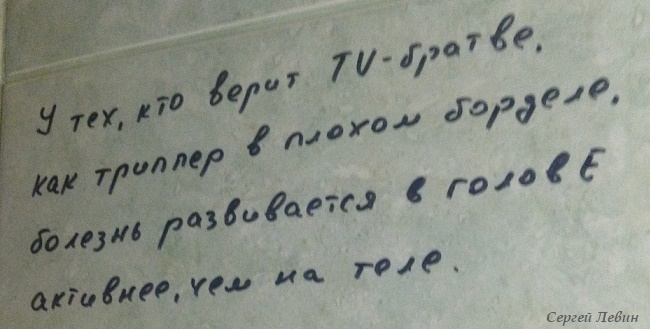 У тех, кто верит TV-братве,
как триппер в плохом борделе,
болезнь развивается в головЕ
активнее, чем на теле.
Сергей Левин